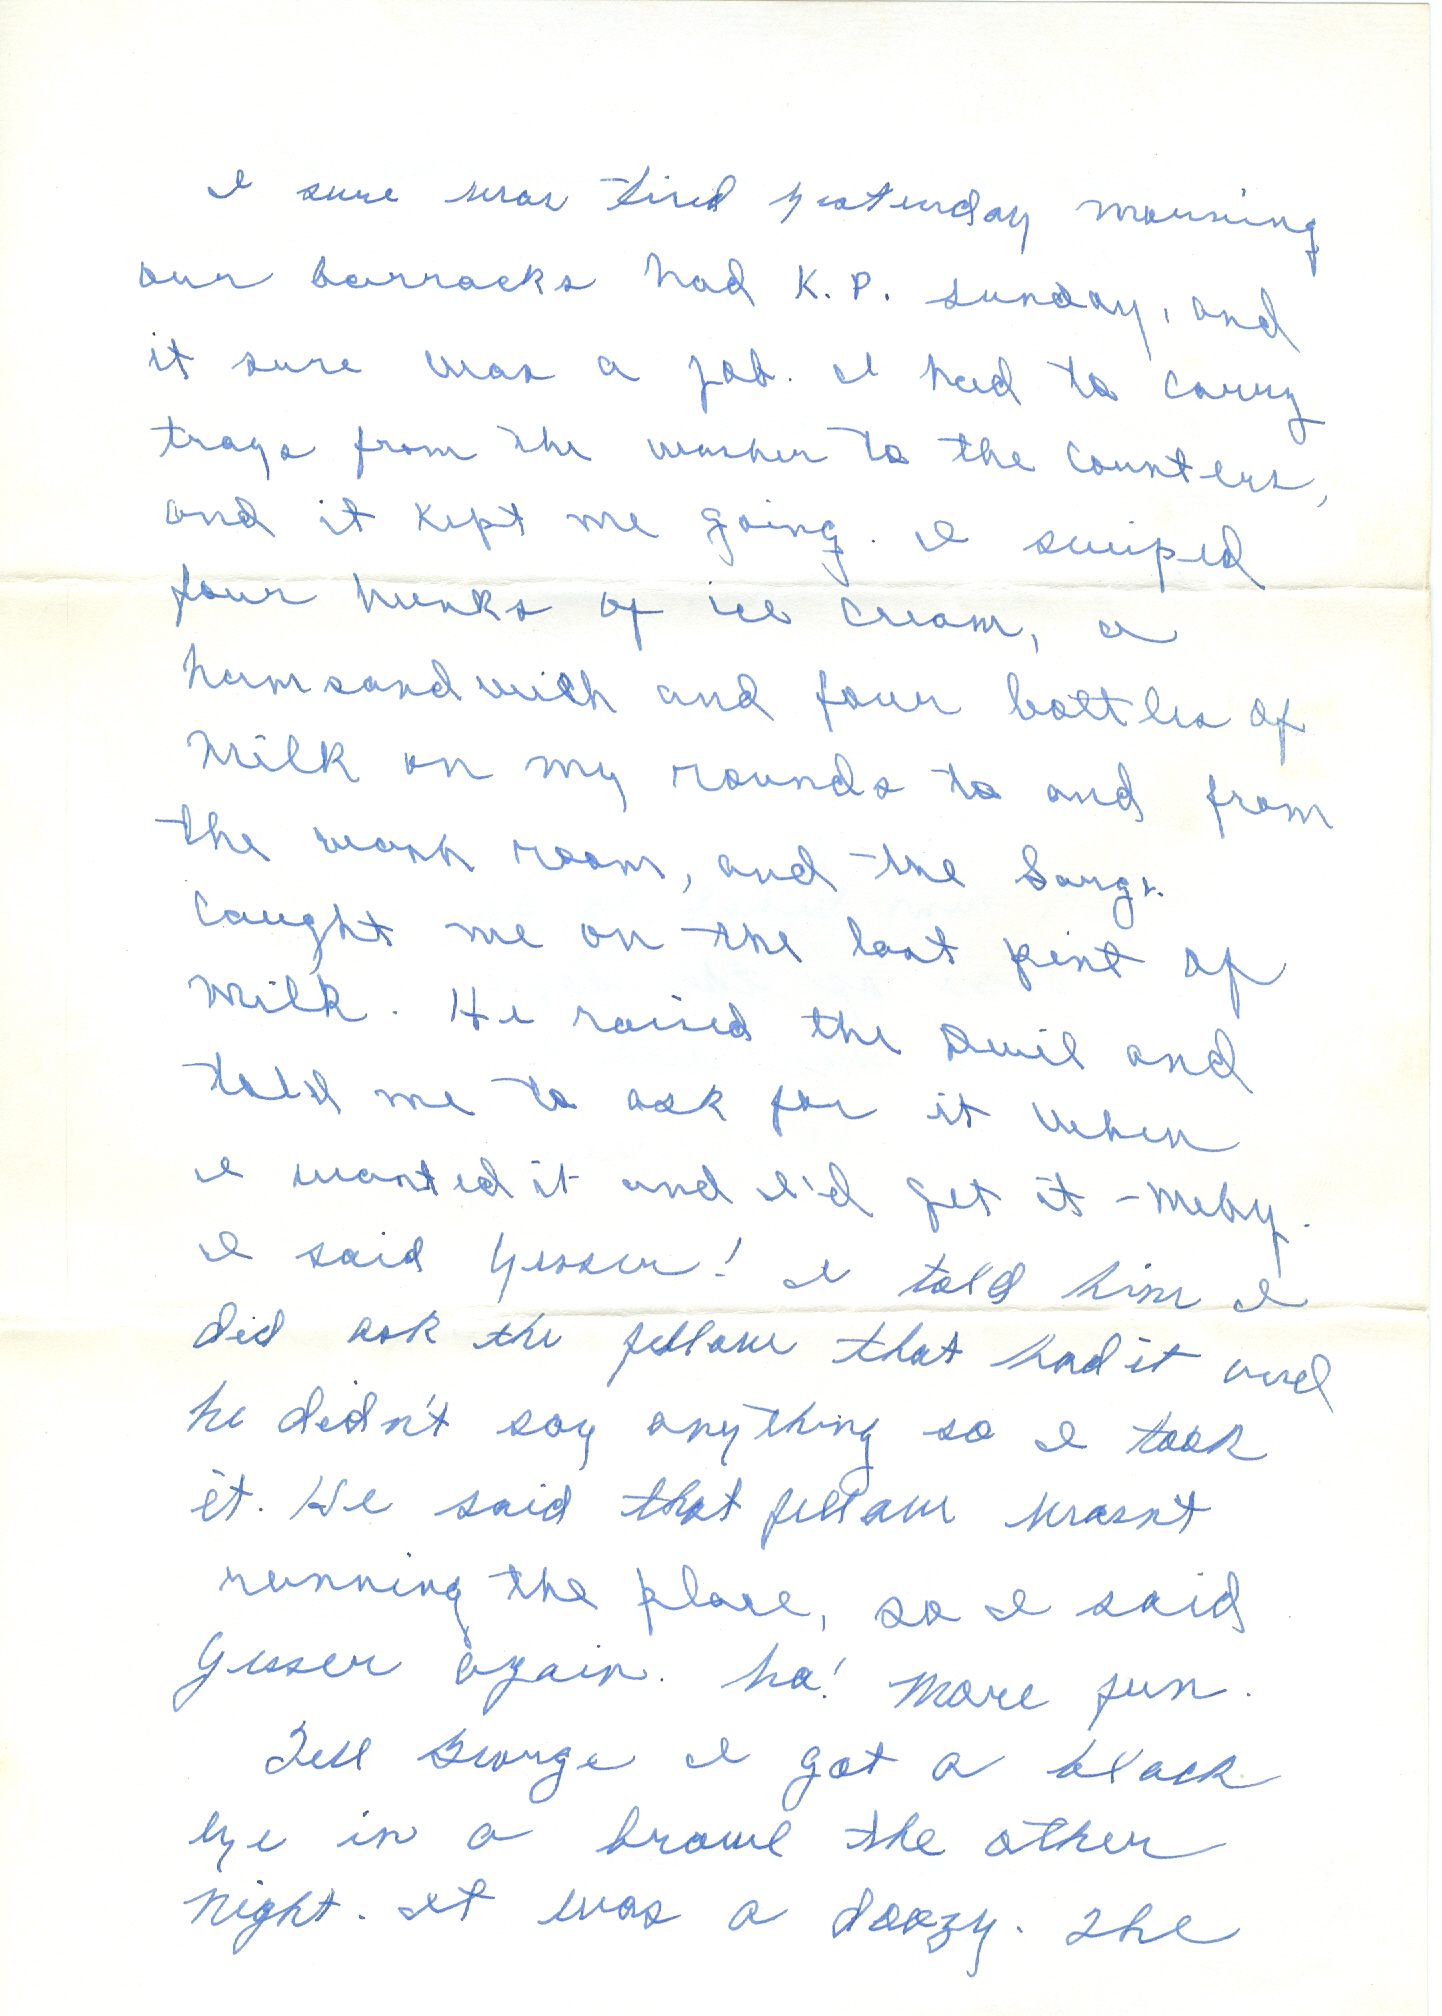 I sure was tired yesterday morning
our barracks had K.P. sunday, and
it sure was a job. I had to carry
trays from the washer to the counters,
and it kept me going. I swiped
four hunks of ice cream, a
ham sandwich and four bottles of
milk on my rounds to and from
the wash room, and the Sargt.
caught me on the last pint of
milk. He raised the devil and
told me to ask for it when
I wanted it and I'd get it - meby.
I said Yesser! I told him I
did ask the fellow that had it and
he didn't say anything so I took
it. He said that fellow wasnt
running the place, so I said
Yesser again. ha! more fun.
Tell George I got a black
eye in a brawl the other
night. It was a doozy. The